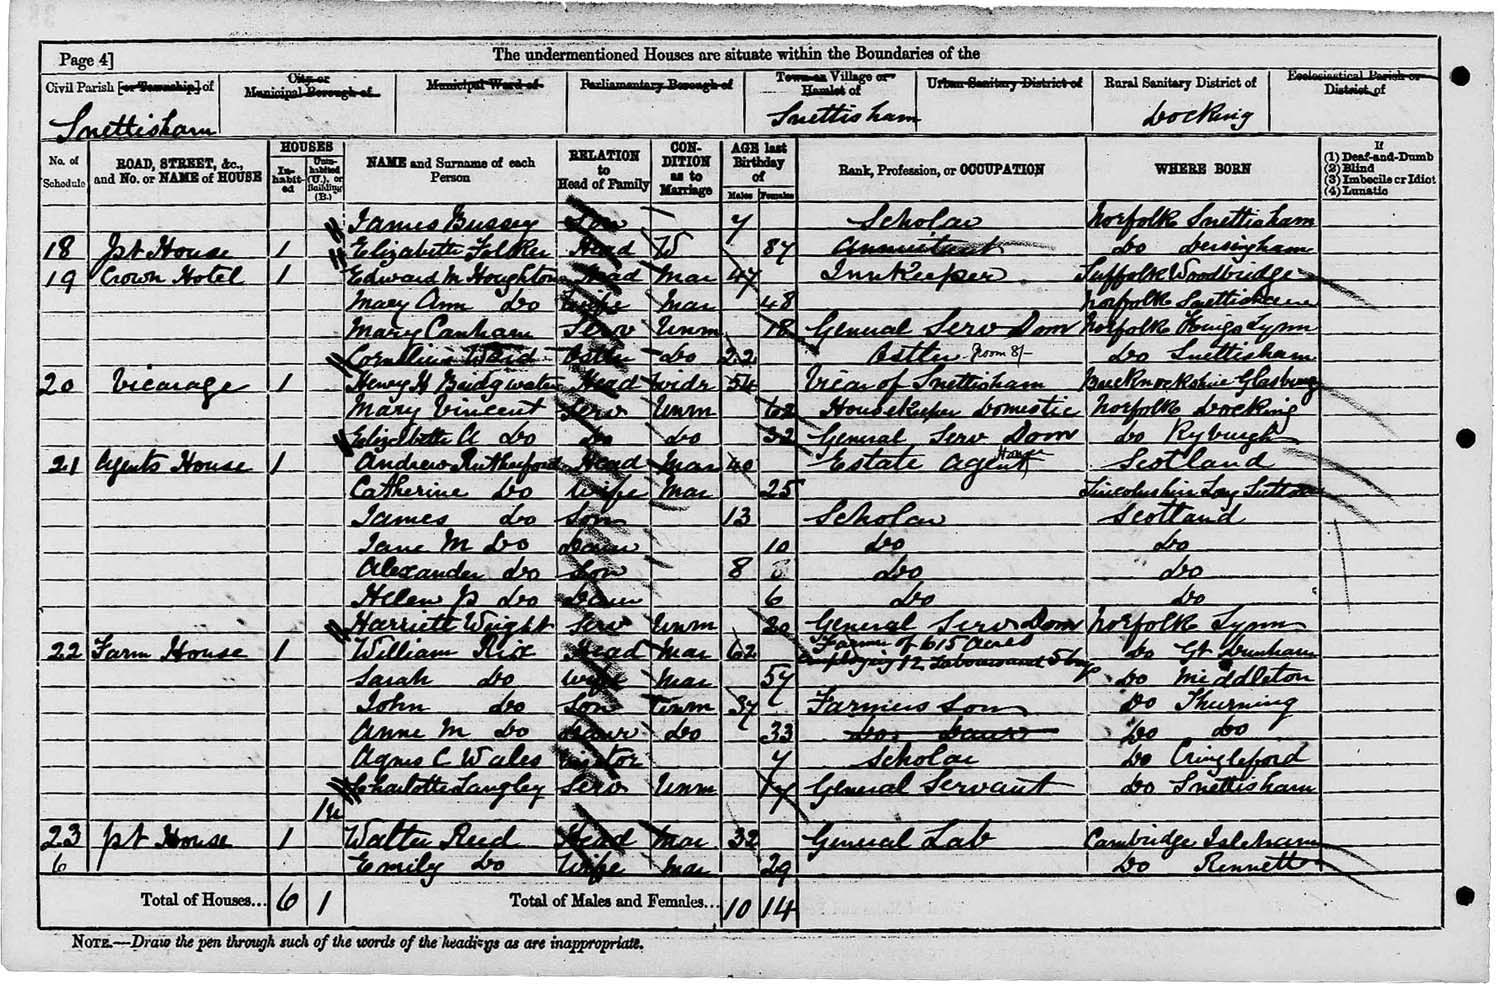 Page 4]
The undermentioned Houses are situate within the Boundaries of the
Civil Parish [or Township] of
City or Municipal Borough of
Municipal Ward of
Parliamentary Borough of
Town or Village or Hamlet of
Urban Sanitary District of
Rural Sanitary District of
Ecclesiastical Parish or District of
Snettisham Snettisham Docking
No. of Schedule
ROAD, STREET, &c., and No. or NAME of HOUSE
HOUSES
Inhabited
Uninhabited (U.), or Building (B.)
NAME and Surname of each Person
RELATION to Head of Family
CONDITION as to Marriage
AGE last Birthday of
Males Females
Rank, Profession, or OCCUPATION
WHERE BORN
If
(1) Deaf-and-Dumb
(2) Blind
(3) Imbecile or Idiot
(4) Lunatic
James Bussey Son 7 Scholar Norfolk Snettisham
18 pt House 1 Elizabeth Head W 87 Annuitant Do Dersingham
19 Crown Hotel 1 Edward M Houghton Head Mar 47 Innkeeper Suffolk Woodbridge
Mary Ann Do Wife Mar 48 Norfolk Snettisham
Mary Canham Serv Unm 18 General Serv Dom Norfolk Kings Lynn
Cornelius Ward Ostler Do 22 Ostler Do Snettisham
20 Vicarage 1 Henry H Bridgwater Head Widr 54 Vicar of Snettisham Glasbury
Mary Vincent Serv Unm 62 Housekeeper Domestic Norfolk Docking
Elizabeth A Do Do Do 32 General Serv Dom Do Ryburgh
21 Agents House 1 Andrew Rutherford Head Mar 40 Estate Agent Scotland
Catherine Do Wife Mar 25 Lincolnshire Long Sutton
James Do Son 13 Scholar Scotland
Jane M Do Daur 10 Do Do
Alexander Do Son 8 Do Do
Helen P Do Daur 6 Do Do
Harriett Wright Serv Unm 20 General Serv Dom Norfolk Lynn
22 Farm House 1 William Rix Head Mar 62 Farmer of 615 Acres employing 12 Labourers and 5 boys Do Gt Dunham
Sarah Do Wife Mar 57 Do Middleton
John Do Son Unm 37 Farmers Son Do Thurning
Anne M Do Daur Do 33 Do Daur Do Do
Agnes C Wales Visitor 7 Scholar Do Cringleford
Charlotte Langley Serv Unm 17 General Servant Do Snettisham
1u
23 pt House 1 Walter Reed Head Mar 32 General Lab Cambridge Isleham
6 Emily Do Wife Mar 29 Do Kennett
Total of Houses... 6 1 Total of Males and Females... 10 14
NOTE.—Draw the pen through such of the words of the headings as are inappropriate.